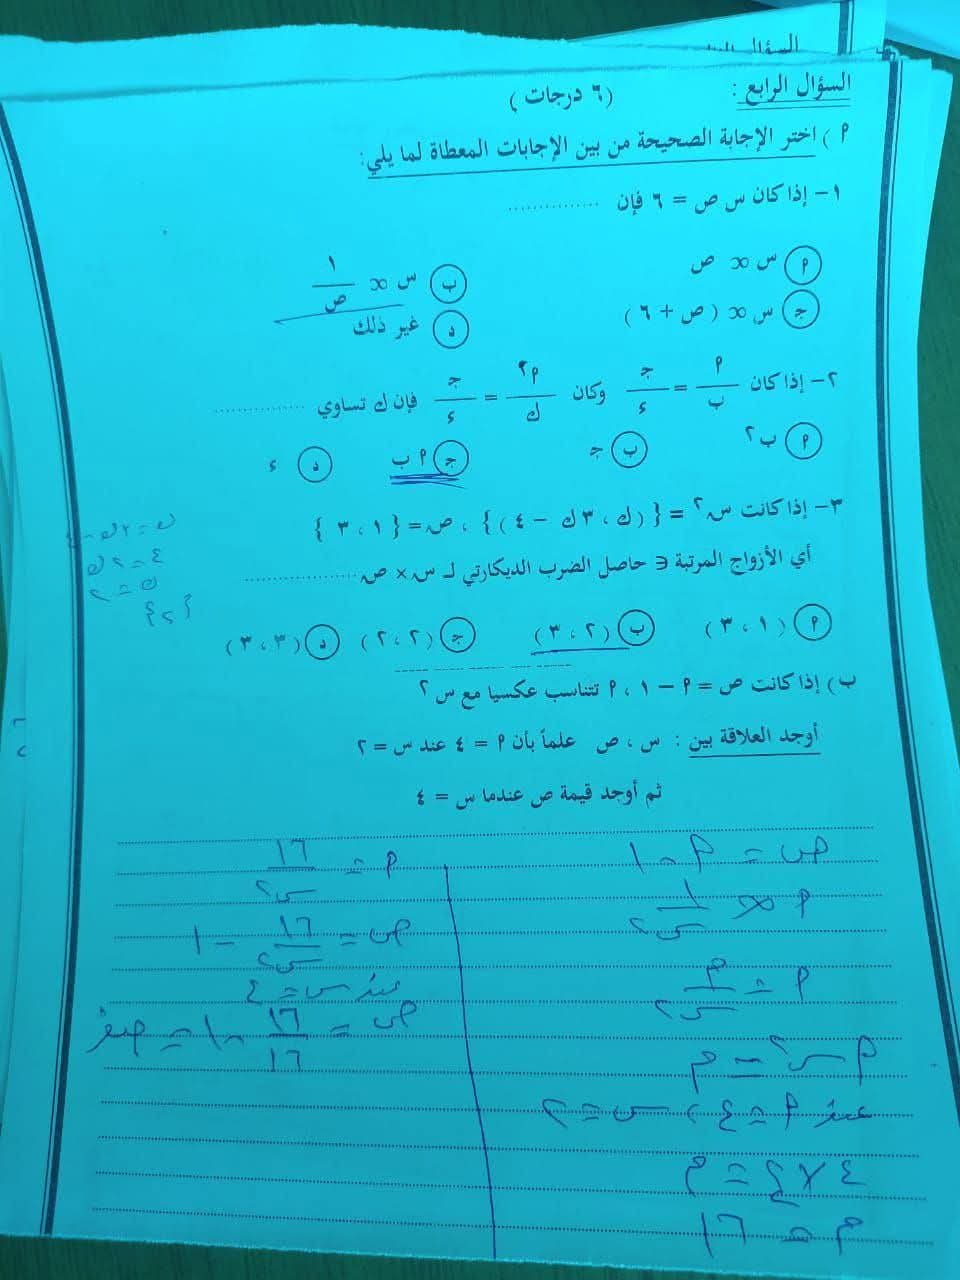 السؤال
السؤال الرابع : (٦ درجات)
٩) اختر الإجابة الصحيحة من بين الإجابات المعطاة لما يلي:
١- إذا كان س ص = ٦ فإن ...............
٩ س ∝ ص
ب س ∝ ١/ص
جـ س ∝ (ص + ٦)
د غير ذلك
٢- إذا كان ٩/ب = جـ/ء وكان ٩٢/ك = جـ/ء فإن ك تساوي ...............
٩ ب٢
ب جـ
جـ ٩ ب
د ء
٣- إذا كانت س٢ = {(ك ، ٣ك - ٤)} ، ص = {١ ، ٣}
أي الأزواج المرتبة ∈ حاصل الضرب الديكارتي لـ س × ص ...................
٩ (١ ، ٣) ب (٢ ، ٣) جـ (٢ ، ٢) د (٣ ، ٣)
٤ = ٢ك
ك = ٢
{٢}
ب) إذا كانت ص = ٩ - ١ ، ٩ تتناسب عكسيا مع س٢
أوجد العلاقة بين : س ، ص علماً بأن ٩ = ٤ عند س = ٢
ثم أوجد قيمة ص عندما س = ٤
ص = ٩ - ١
٩ ∝ ١/س٢
٩ = م/س٢
٩ س٢ = م
عند ٩ = ٤ ، س = ٢
٤ × ٤ = م
م = ١٦
٩ = ١٦/س٢
ص = ١٦/س٢ - ١
عند س = ٤
ص = ١٦/١٦ - ١ = صفر